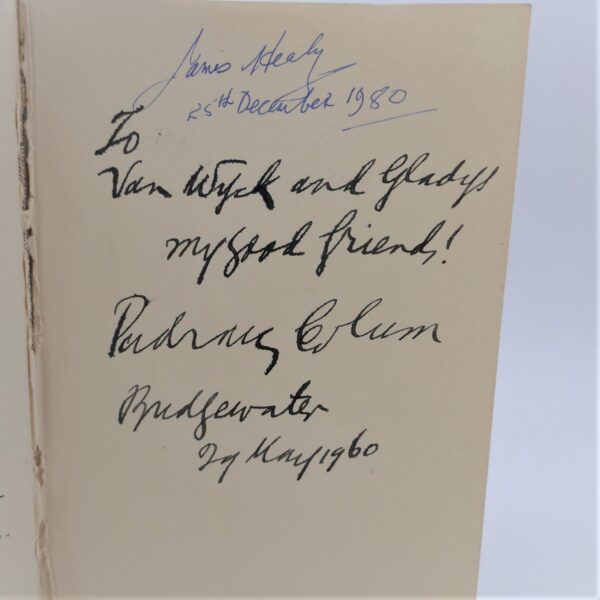 James Healy
25th December 1980
To
Van Wyck and Gladys
my good friends!
Padraic Colum
Bridgewater
29 May 1960